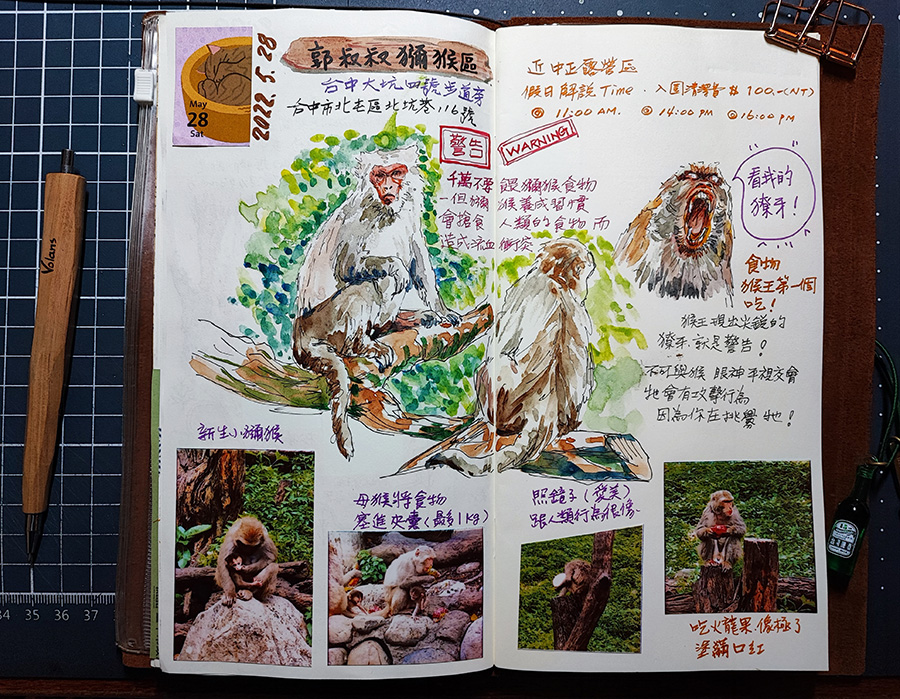 May
28
Sat
2022. 5. 28
郭叔叔獼猴區
台中大坑四號步道旁
台中市北屯區北坑巷116號
警告
WARNING
千萬不要餵獼猴食物
一但獼猴養成習慣
會搶食人類的食物而
造成流血衝突
近中正露營區
假日解說Time . 入園清潔費 $ 100.-(NT)
@ 11:00 AM. @ 14:00 PM @ 16:00 PM
看我的
獠牙!
食物
猴王第一個
吃!
猴王現出尖銳的
獠牙,就是警告!
不可與猴眼神平視交會
牠會有攻擊行為
因為你在挑釁牠!
新生小獼猴
母猴將食物
塞進夾囊(最多1kg)
照鏡子(愛美)
跟人類行為很像.
吃火龍果.像極了
塗滿口紅
Volans
34 35 36 37